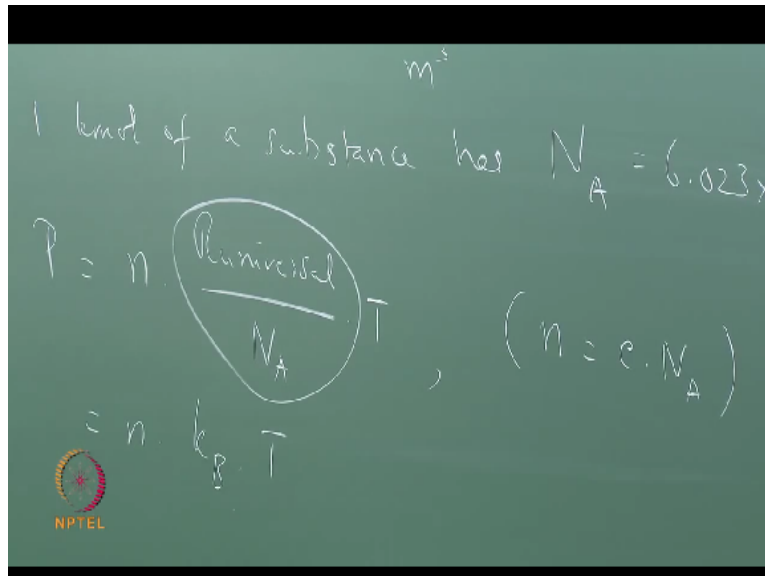 m⁻³
1 kmol of a substance has N_A = 6.023x
P = n. R_universal / N_A . T , (n = c. N_A)
= n. k_B. T
NPTEL